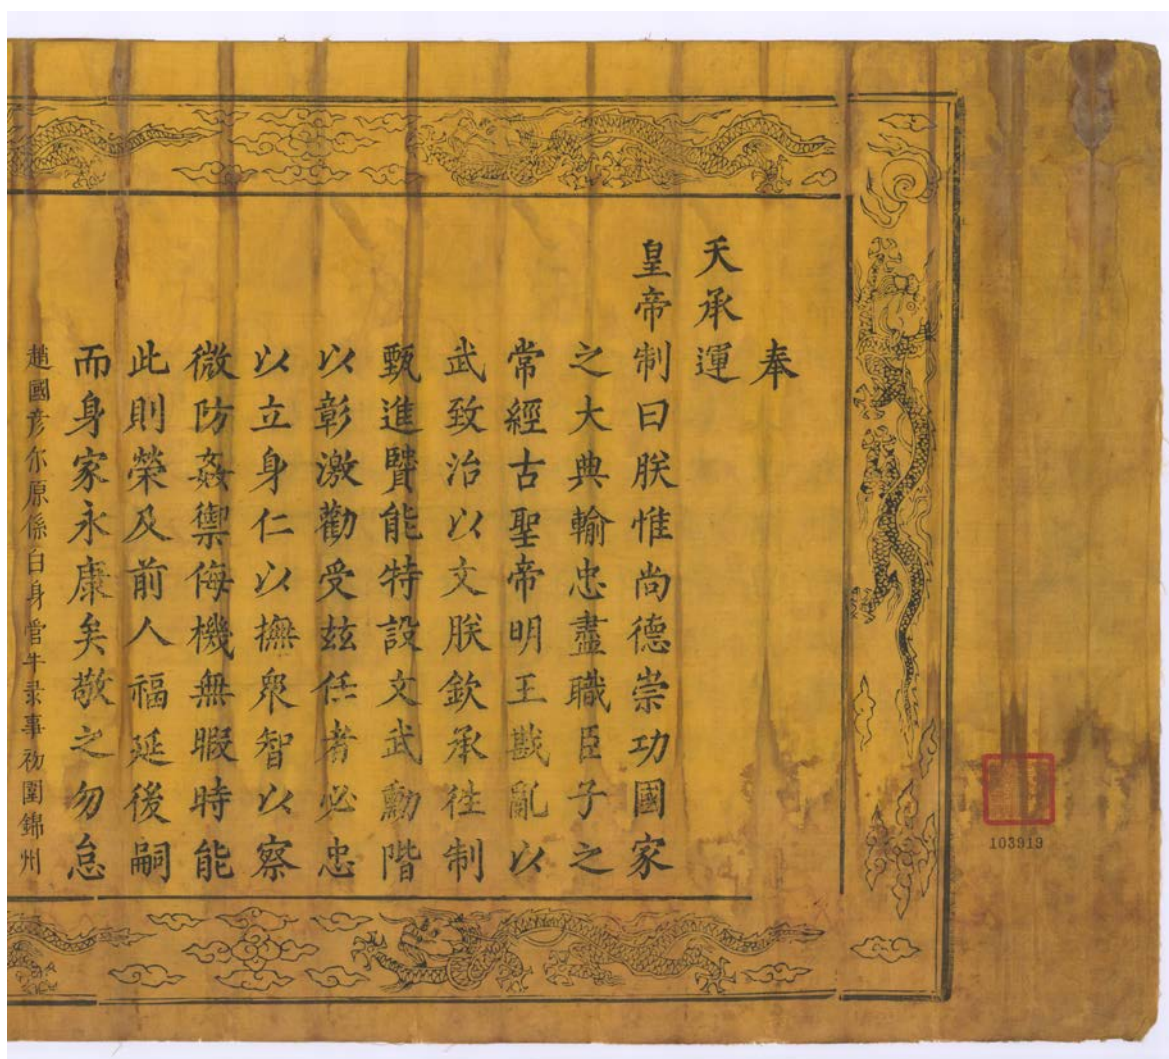 奉
天承運
皇帝制曰朕惟尚德崇功國家
之大典輸忠盡職臣子之
常經古聖帝明王戡亂以
武致治以文朕欽承往制
甄進賢能特設文武勳階
以彰激勸受玆任者必忠
以立身仁以撫衆智以察
微防姦禦侮機無暇時能
此則榮及前人福延後嗣
而身家永康矣敬之勿怠
趙國彥尔原係白身管牛彔事初圍錦州
103919